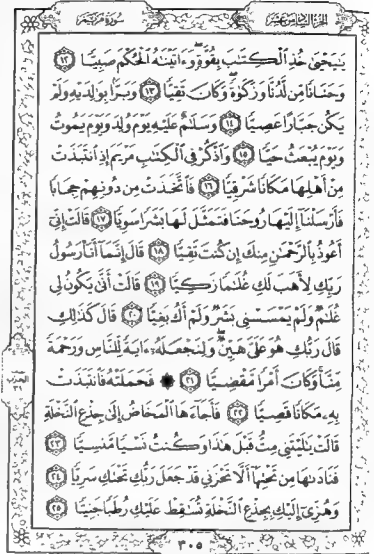 سورة مريم
الجزء السادس عشر
يَٰيَحْيَىٰ خُذِ ٱلْكِتَٰبَ بِقُوَّةٍۖ وَءَاتَيْنَٰهُ ٱلْحُكْمَ صَبِيًّا ١٢
وَحَنَانًا مِّن لَّدُنَّا وَزَكَوٰةًۖ وَكَانَ تَقِيًّا ١٣ وَبَرًّۢا بِوَٰلِدَيْهِ وَلَمْ
يَكُن جَبَّارًا عَصِيًّا ١٤ وَسَلَٰمٌ عَلَيْهِ يَوْمَ وُلِدَ وَيَوْمَ يَمُوتُ
وَيَوْمَ يُبْعَثُ حَيًّا ١٥ وَٱذْكُرْ فِى ٱلْكِتَٰبِ مَرْيَمَ إِذِ ٱنتَبَذَتْ
مِنْ أَهْلِهَا مَكَانًا شَرْقِيًّا ١٦ فَٱتَّخَذَتْ مِن دُونِهِمْ حِجَابًا
فَأَرْسَلْنَآ إِلَيْهَا رُوحَنَا فَتَمَثَّلَ لَهَا بَشَرًا سَوِيًّا ١٧ قَالَتْ إِنِّىٓ
أَعُوذُ بِٱلرَّحْمَٰنِ مِنكَ إِن كُنتَ تَقِيًّا ١٨ قَالَ إِنَّمَآ أَنَا۠ رَسُولُ
رَبِّكِ لِأَهَبَ لَكِ غُلَٰمًا زَكِيًّا ١٩ قَالَتْ أَنَّىٰ يَكُونُ لِى
غُلَٰمٌ وَلَمْ يَمْسَسْنِى بَشَرٌ وَلَمْ أَكُ بَغِيًّا ٢٠ قَالَ كَذَٰلِكِ
قَالَ رَبُّكِ هُوَ عَلَىَّ هَيِّنٌۖ وَلِنَجْعَلَهُۥٓ ءَايَةً لِّلنَّاسِ وَرَحْمَةً
مِّنَّاۚ وَكَانَ أَمْرًا مَّقْضِيًّا ٢١ ۞ فَحَمَلَتْهُ فَٱنتَبَذَتْ
بِهِۦ مَكَانًا قَصِيًّا ٢٢ فَأَجَآءَهَا ٱلْمَخَاضُ إِلَىٰ جِذْعِ ٱلنَّخْلَةِ
قَالَتْ يَٰلَيْتَنِى مِتُّ قَبْلَ هَٰذَا وَكُنتُ نَسْيًا مَّنسِيًّا ٢٣
فَنَادَىٰهَا مِن تَحْتِهَآ أَلَّا تَحْزَنِى قَدْ جَعَلَ رَبُّكِ تَحْتَكِ سَرِيًّا ٢٤
وَهُزِّىٓ إِلَيْكِ بِجِذْعِ ٱلنَّخْلَةِ تُسَٰقِطْ عَلَيْكِ رُطَبًا جَنِيًّا ٢٥
٣٠٥